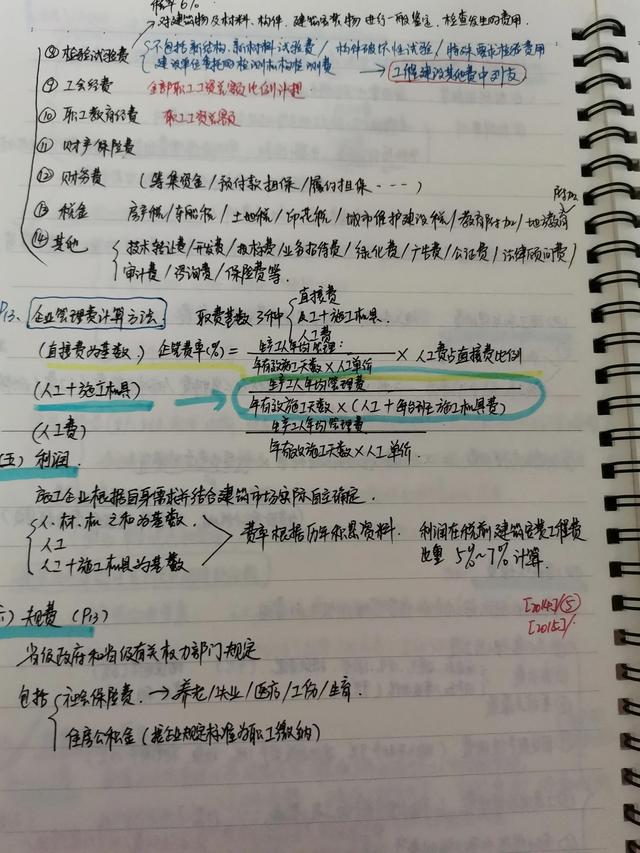 税率6%
→对建筑物及材料、构件、建筑安装物进行一般鉴定、检查发生的费用.
⑧检验试验费 不包括新结构、新材料试验费/构件破坏性试验/特殊要求检验费用
建设单位委托的检测机构检测费 → 工程建设其他费中列支
⑨工会经费 全部职工工资总额比例计提
⑩职工教育经费 职工工资总额
⑪财产保险费
⑫财务费 (筹集资金/预付款担保/履约担保····)
附加
⑬税金 房产税/车船税/土地税/印花税/城市维护建设税/教育附加/地方教育
⑭其他 技术转让费/开发费/投标费/业务招待费/绿化费/广告费/公证费/法律顾问费/
审计费/咨询费/保险费等.
P13、企业管理费计算方法 取费基数 3种 直接费
人工+施工机具.
人工费
(直接费为基数) 企管费率(%)= 生产工人年均管理: / 年有效施工天数×人工单价 × 人工费占直接费比例
(人工+施工机具) → 生产工人年均管理费 / 年有效施工天数×(人工+每台班施工机具费)
(人工费) 生产工人年均管理费 / 年有效施工天数×人工单价.
(五)利润
施工企业根据自身需求并结合建筑市场实际自主确定.
人、材、机之和为基数.
人工
人工+施工机具为基数
费率根据历年积累资料. 利润在税前建筑安装工程费
比重 5%~7%计算.
六)规费(P13) [2014]⑤
[2015]/.
省级政府和省级有关权力部门规定
包括 社会保险费.→养老/失业/医疗/工伤/生育.
住房公积金(按企业规定标准为职工缴纳)